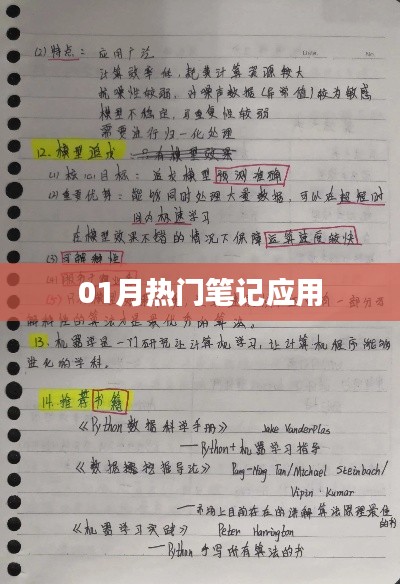 (2) 特点：应用广泛
计算效率低，耗费计算资源较大
抗噪性较弱，对噪声数据(异常值)较为敏感
模型不稳定，可重复性较弱
需要进行归一化处理
12. 模型
(1) 核心目标：追求模型预测准确
(2) 重要优势：能够同时处理大量数据，可以在超短时
间内极速学习
在模型效果不错的情况下保障运算速度较快
(3) 可解释性
(4)
01月热门笔记应用
一部分
解释性的算法才是最优秀的算法。
13. 机器学习是一门研究让计算机学习，让计算机程序能够
进化的学科。
14. 推荐书籍
《Python数据科学手册》 Jake VanderPlas
——Python+机器学习指导
《数据挖掘导论》 Pang-Ning Tan/Michael Steinbach/
Vipin Kumar
——市场上目前存在的讲解算法原理最佳
的书
《机器学习实践》 Peter Harrington
——Python手写所有算法的书